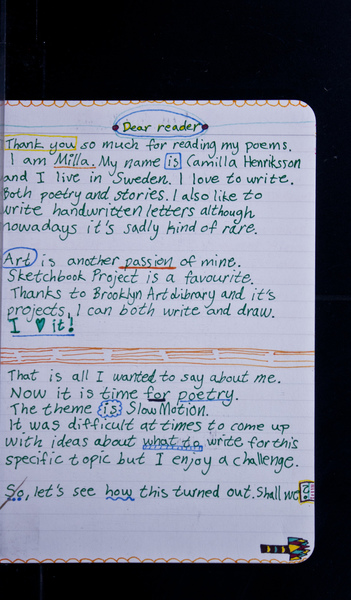 Dear reader
Thank you so much for reading my poems.
I am Milla. My name is Camilla Henriksson
and I live in Sweden. I love to write.
Both poetry and stories. I also like to
write handwritten letters although
nowadays it's sadly kind of rare.
Art is another passion of mine.
Sketchbook Project is a favourite.
Thanks to Brooklyn Art Library and it's
projects, I can both write and draw.
I ♥ it!
That is all I wanted to say about me.
Now it is time for poetry.
The theme is Slow Motion.
It was difficult at times to come up
with ideas about what to write for this
specific topic but I enjoy a challenge.
So, let's see how this turned out. Shall we?